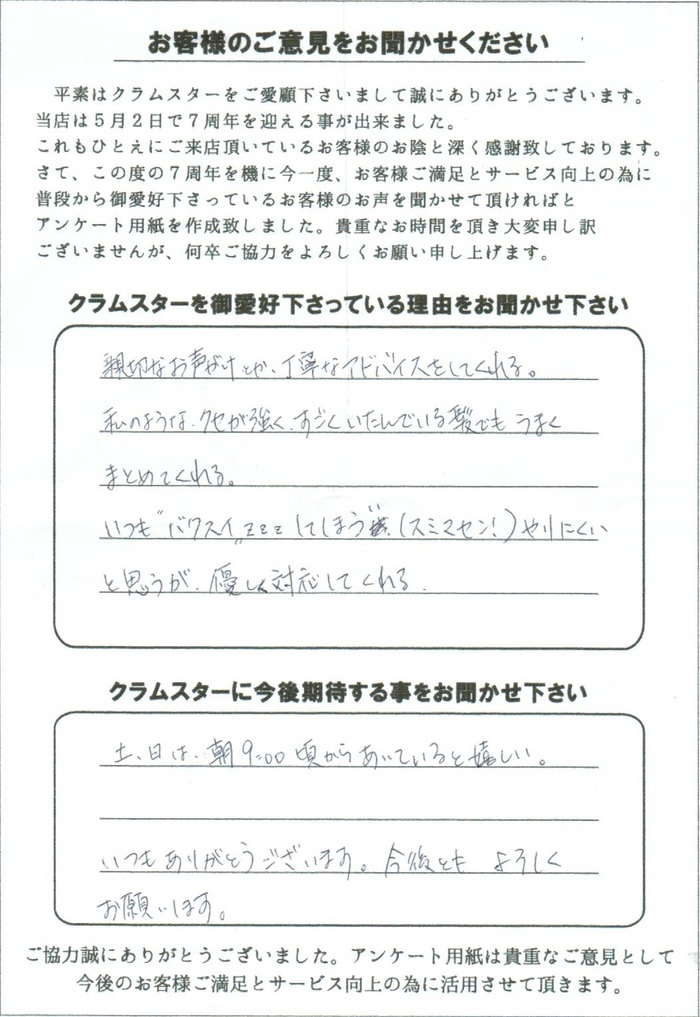 お客様のご意見をお聞かせください
平素はクラムスターをご愛顧下さいまして誠にありがとうございます。
当店は5月2日で7周年を迎える事が出来ました。
これもひとえにご来店頂いているお客様のお陰と深く感謝致しております。
さて、この度の7周年を機に今一度、お客様ご満足とサービス向上の為に
普段から御愛好下さっているお客様のお声を聞かせて頂ければと
アンケート用紙を作成致しました。貴重なお時間を頂き大変申し訳
ございませんが、何卒ご協力をよろしくお願い申し上げます。
クラムスターを御愛好下さっている理由をお聞かせ下さい
親切なお声がけとか、丁寧なアドバイスをしてくれる。
私のような、クセが強く、すごくいたんでいる髪でも うまく
まとめてくれる。
いつも"バクスイ"zzzしてしまう (スミマセン!) やりにくい
と思うが、優しく対応してくれる.
クラムスターに今後期待する事をお聞かせ下さい
土、日は、朝9:00頃からあいていると嬉しい。
いつもありがとうございます。今後とも よろしく
お願いします。
ご協力誠にありがとうございました。アンケート用紙は貴重なご意見として
今後のお客様ご満足とサービス向上の為に活用させて頂きます。